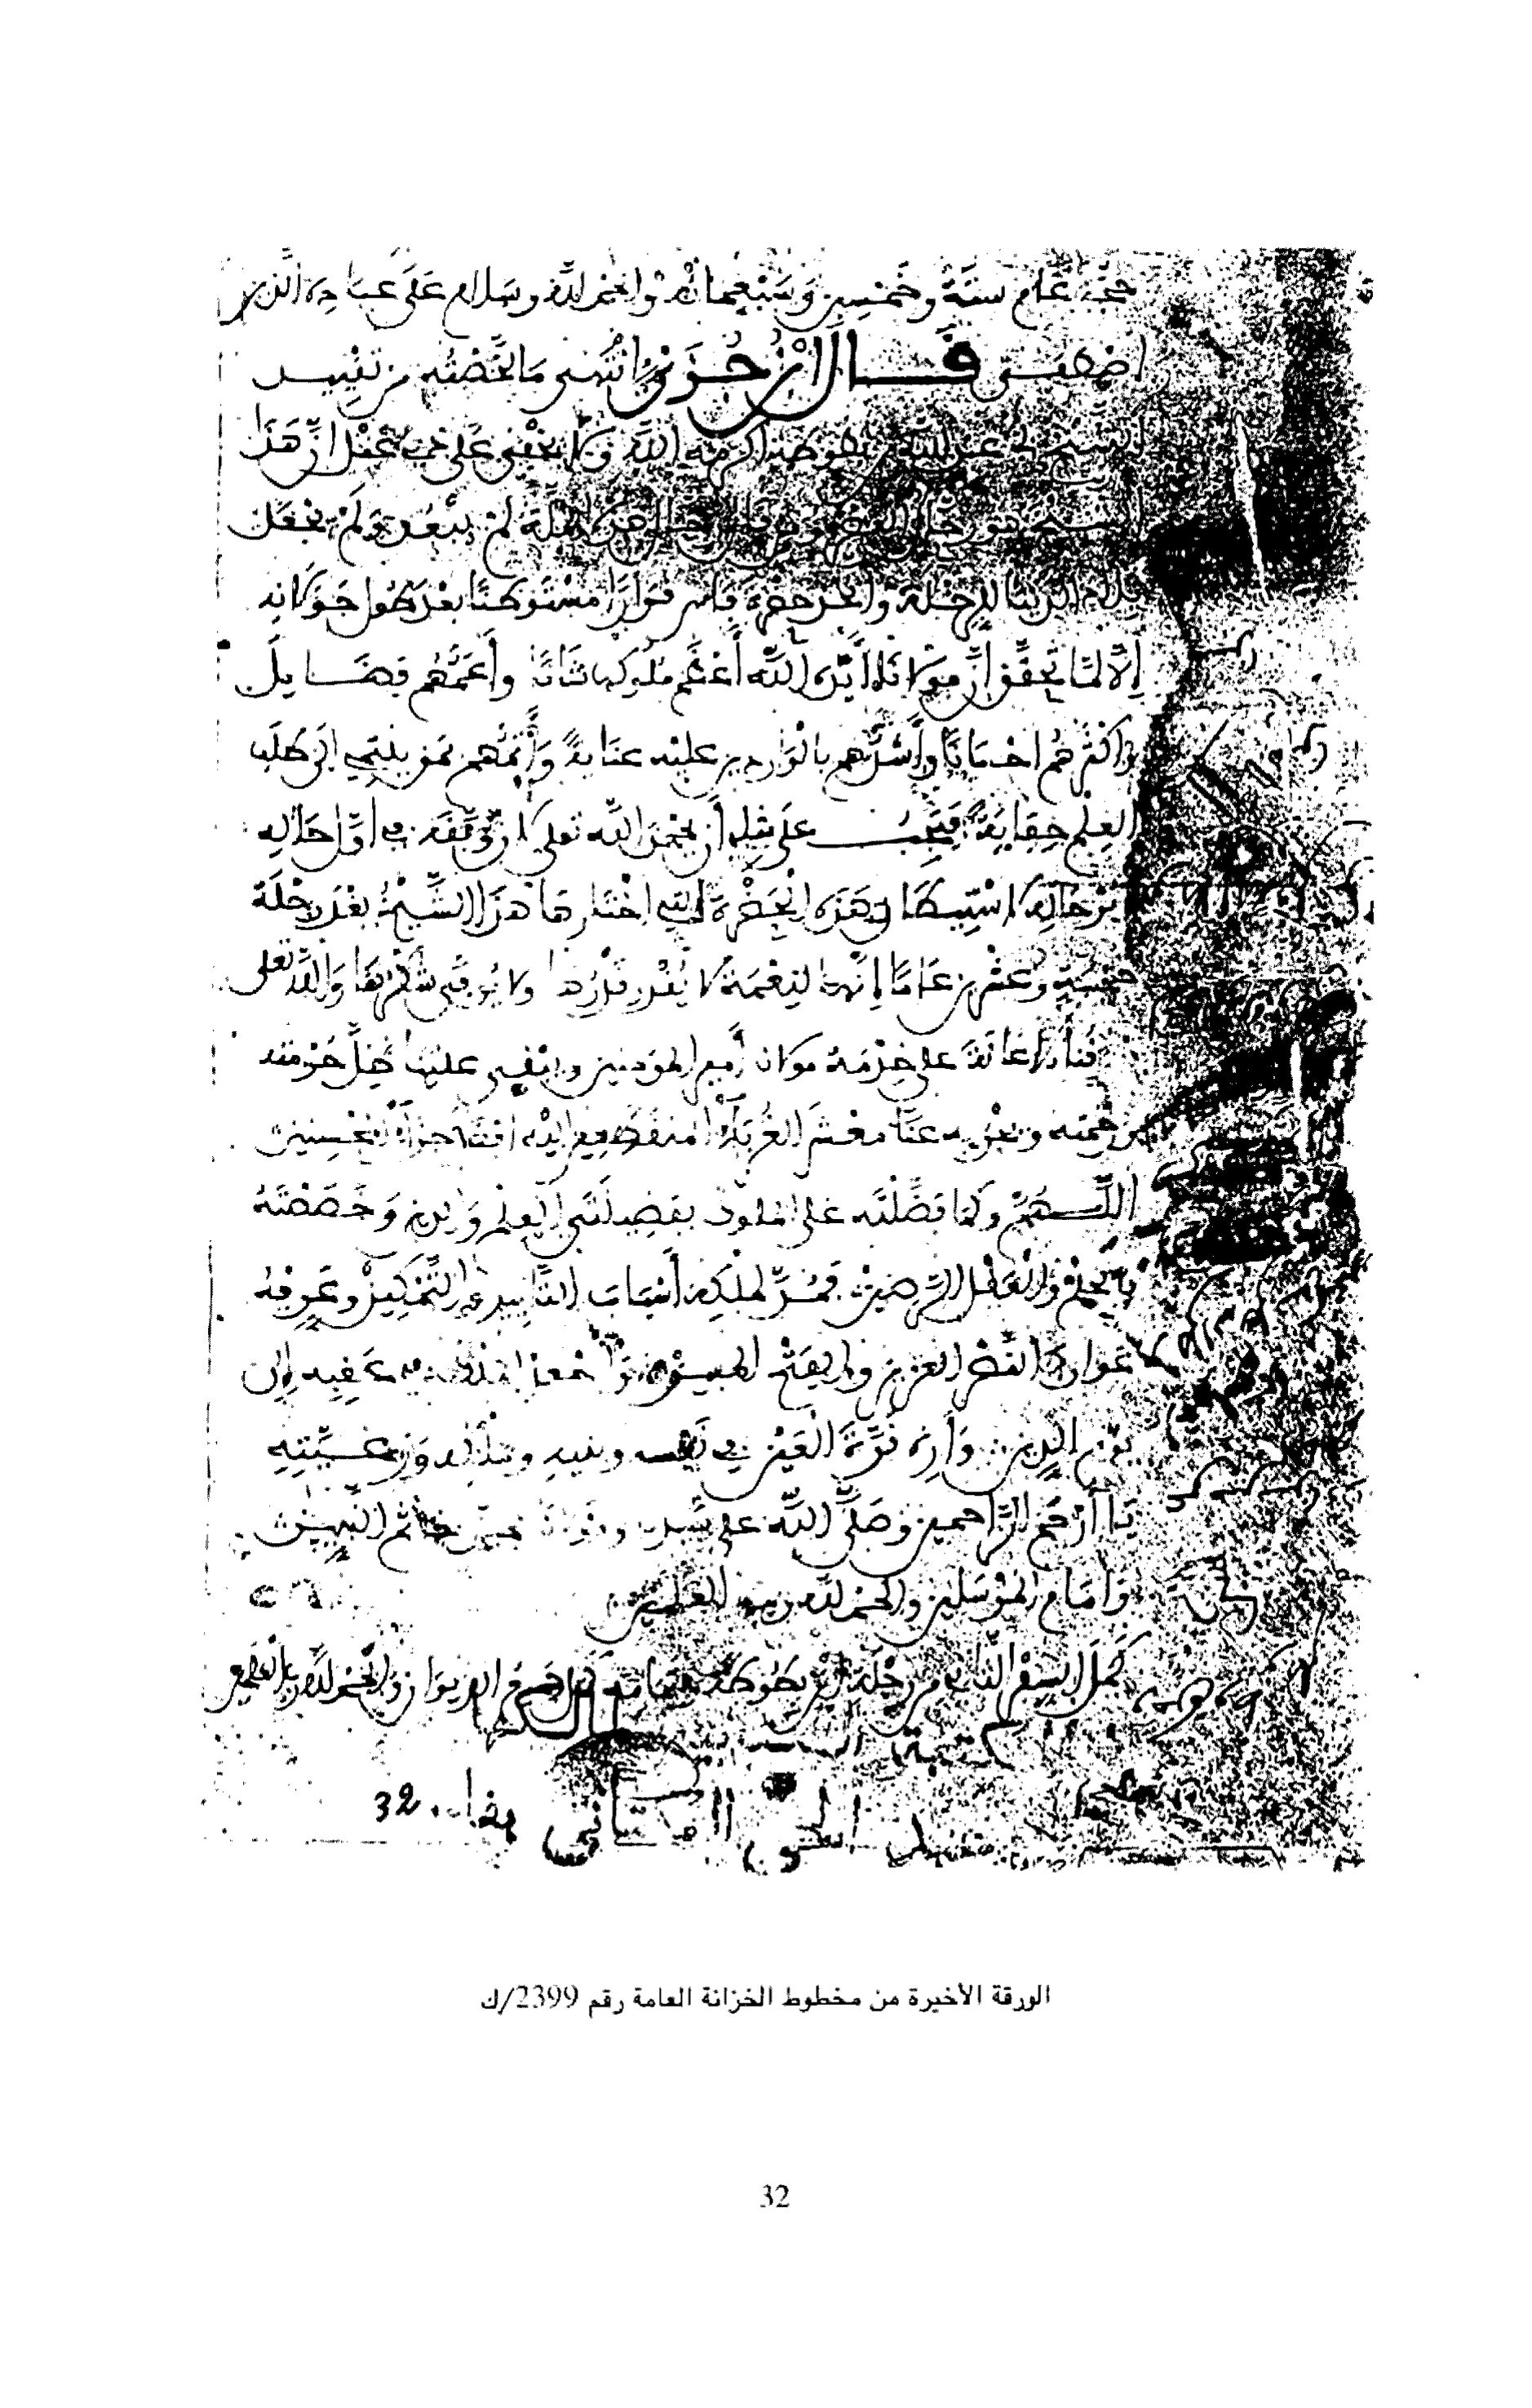 حجة عام ستة وخمسين وسبعمائة والحمد لله وسلام على عباده الذين
اصطفى قال ابن جزي انتهى ما لخصته من تقييد
الشيخ أبي عبد الله بن بطوطة أكرمه الله ولا يخفى على ذي عقل أن هذا
الشيخ هو رحال العصر ومن قال رحال هذه الملة لم يبعد ولم يجعل
بلاد الدنيا للرحلة واتخذ حضرة فاس قرارا مستوطنا بعد طول جولانه
إلا لما تحقق أن مولانا أيده الله أعظم ملوكها شانا وأعمهم فضايل
وأكثرهم احسانا وأشدهم بالواردين عليه عناية وأتمهم بمن ينتمي إلى طلب
العلم حماية فيجب على مثلي أن يحمد الله تعلى لأن وفقه في أول حاله
وترحاله لاستيطان هذه الحضرة التي اختارها هذا الشيخ بعد رحلة
خمسة وعشرين عاما إنها لنعمة لا يقدر قدرها ولا يوفى شكرها والله تعلى
يرزقنا الاعانة على خدمة مولانا أمير المومنين ويبقي علينا ظل حرمته
ورحمته ويجزيه عنا معشر الغرباء المنقطعين إليه افضل جزاء المحسنين
اللهم وكما فضلته على الملوك بفضيلتي العلم والدين وخصصته
بالحلم والعقل الرصين فمد لملكه أسباب التاييد والتمكين وعرفه
عوارف النصر العزيز والفتح المبين واجعل الملك في عقبه إلى
يوم الدين وأره قرة العين في نفسه وبنيه وملكه ورعيته
يا أرحم الراحمين وصلى الله على سيدنا ومولانا محمد خاتم النبيين
وإمام المرسلين والحمد لله رب العلمين
كمل السفر الثاني من رحلة ابن بطوطة وبتمامه كمل جميع الديوان والحمد لله رب العلمين
المكتبة
الكتاني بفاس 32
الورقة الأخيرة من مخطوط الخزانة العامة رقم 2399/ك
32